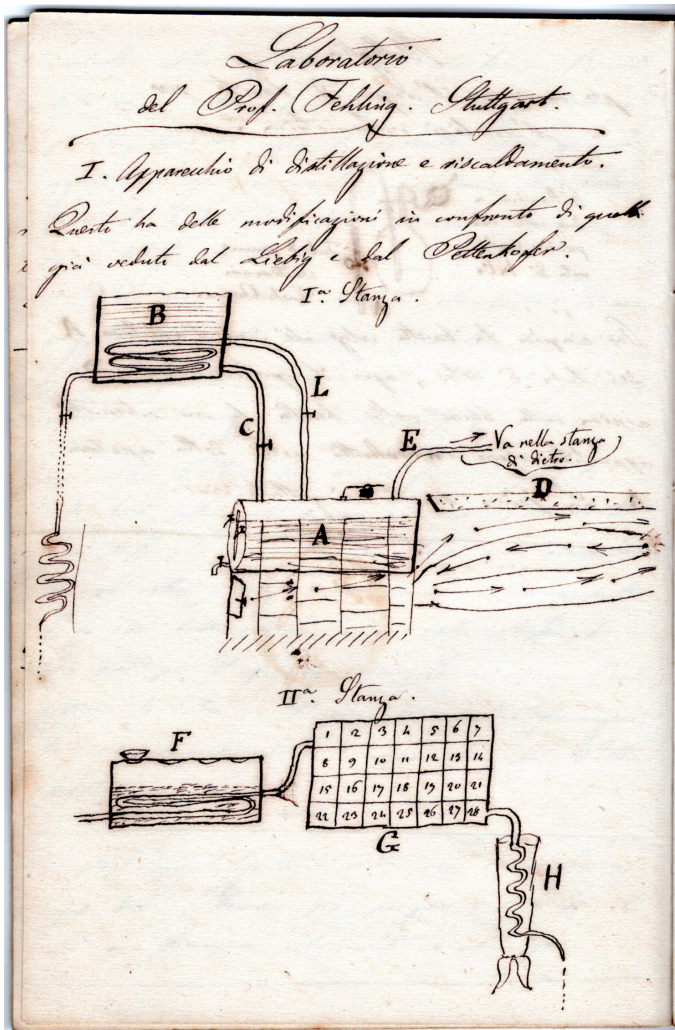 Laboratorio
del Prof. Fehling. Stuttgart.
I. Apparecchio di distillazione e riscaldamento.
Questo ha delle modificazioni in confronto di quelli
già veduti dal Liebig e dal Pettenkofer.
Iª Stanza.
B
L
C
E
Va nella stanza
di dietro.
D
A
IIª Stanza.
F
1 2 3 4 5 6 7
8 9 10 11 12 13 14
15 16 17 18 19 20 21
22 23 24 25 26 27 28
G
H